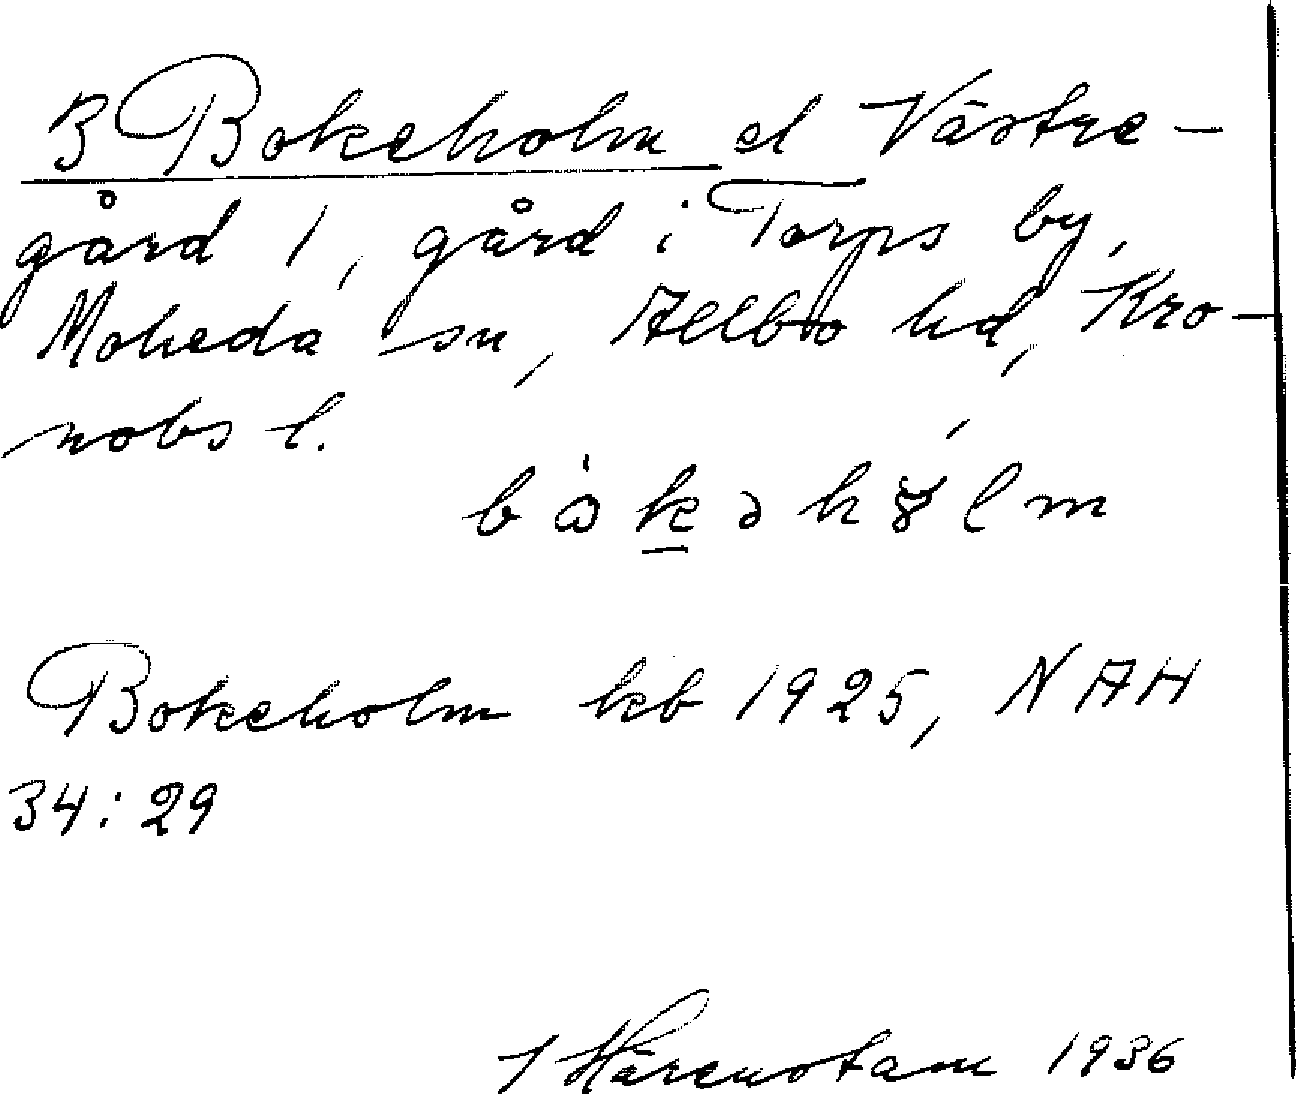 3 Bokeholm el Västre-
gård 1, gård i Torps by,
Moheda sn, Allbo hd, Kro-
nobs l.
Bokeholm kb 1925, NAH
34:29
1936